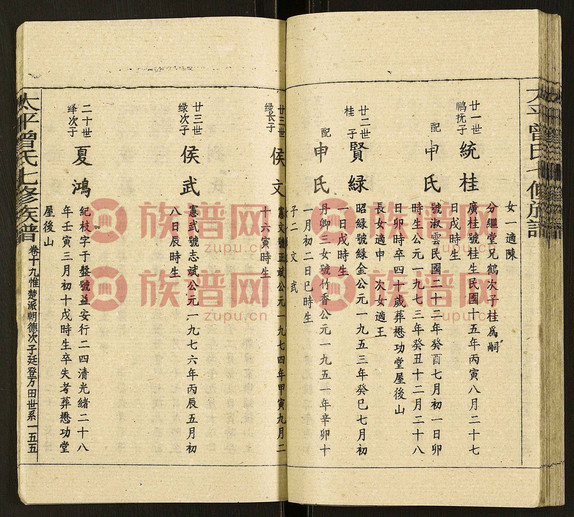 太平曾氏七修族譜
女一適陳
分繼堂兄鶴次子桂為嗣
廿一世
鵬抗子
統桂
廣桂號桂生民國十五年丙寅八月二十七
日戌時生
配
申氏
號淑雲民國二十二年癸酉七月初一日卯
時生公元一九七三年癸丑十二月二十八
日卯時卒四十歲葬懋功堂屋後山
長女適申 次女適王
廿二世
桂子
賢緑
昭緑號緑金公元一九五三年癸巳七月初
一日戌時生
配
申氏
丹卿三女號竹香公元一九五一年辛卯十
一月初二日巳時生
子二 文 武
廿三世
緑長子
侯文
公元一九七四年甲寅九月二
十六寅時生
廿三世
緑次子
侯武
憲武號志斌公元一九七六年丙辰五月初
八日辰時生
二十世
繹次子
夏鴻
紀枝字于盤號益安行二四清光緒二十八
年壬寅三月初十戌時生卒失考葬懋功堂
屋後山
太平曾氏七修族譜
卷十九惟楚派朝德次子廷登方田世系 一五五
族谱网
zupu.cn
族谱网
zupu.cn
族谱网
zupu.cn
族谱网
zupu.cn